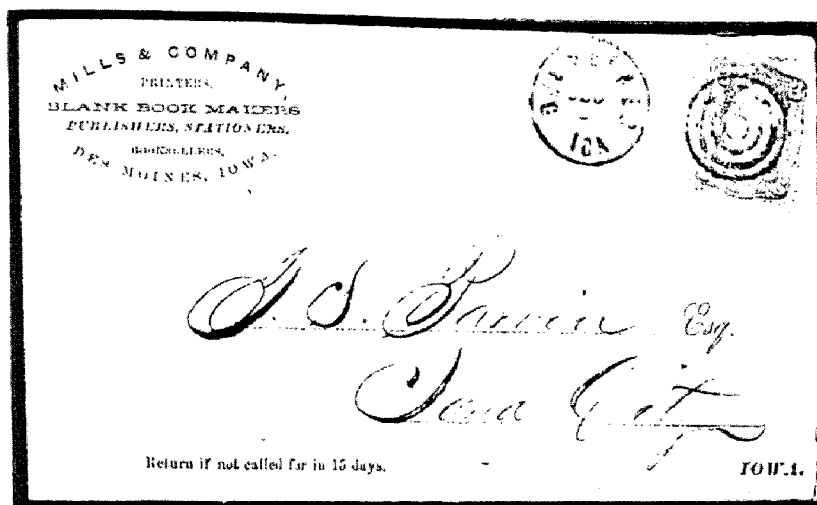 MILLS & COMPANY,
PRINTERS,
BLANK BOOK MAKERS
PUBLISHERS, STATIONERS,
BOOKSELLERS,
DES MOINES, IOWA.
IOW
T. S. Parvin Esq.
Iowa City
Return if not called for in 15 days.
IOWA.